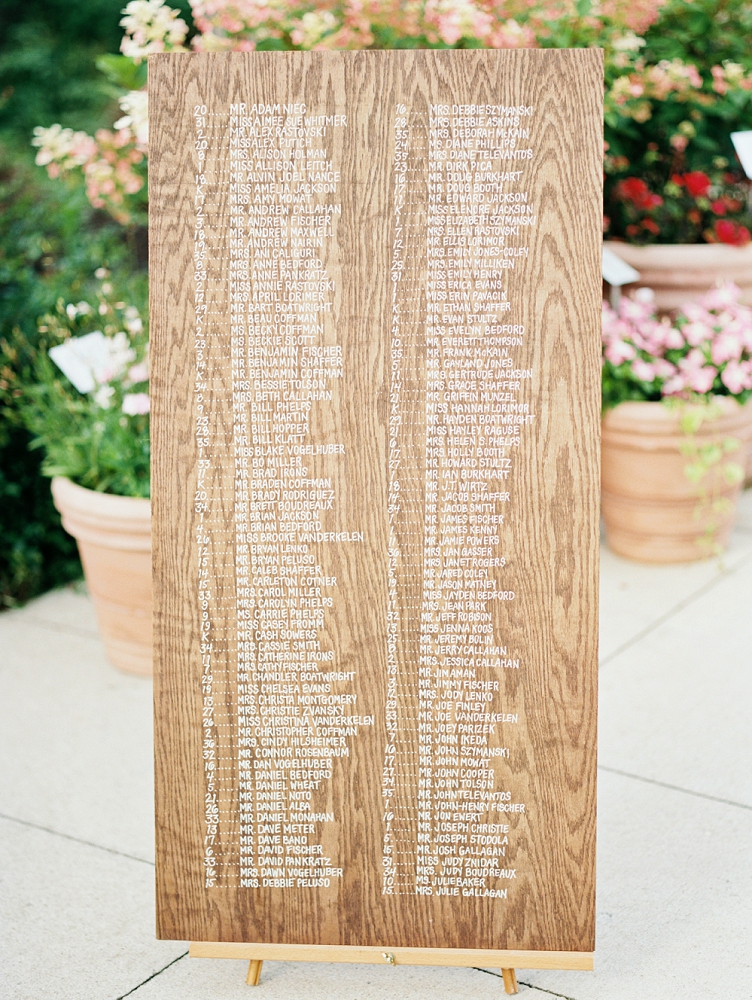 20 MR. ADAM NIEC
31 MISS AIMEE SUEWHITMER
2 MR. ALEX RASTOVSKI
20 MISS ALEX FUTICH
8 MRS. ALISON HOLMAN
1 MISS ALLISON LEITCH
18 MR. ALVIN JOEL NANCE
K MISS AMELIA JACKSON
17 MRS. AMY MOWAT
2 MR. ANDREW CALLAHAN
3 MR. ANDREW FISCHER
18 MR. ANDREW MAXWELL
19 MR. ANDREW NAIRIN
35 MRS. ANI CALIGURI
8 MRS. ANNE BEDFORD
33 MRS. ANNE PANKRATZ
2 MISS ANNIE RASTOVSKI
12 MRS. APRIL LORIMER
29 MR. BART BOATWRIGHT
K MR. BEAU COFFMAN
2 MS. BECKY COFFMAN
23 MS. BECKIE SCOTT
3 MR. BENJAMIN FISCHER
14 MR. BENJAMIN SHAFFER
K MR. BENJAMIN COFFMAN
34 MRS. BESSIE TOLSON
8 MRS. BETH CALLAHAN
9 MR. BILL PHELPS
23 MR. BILL MARTIN
28 MR. BILL HOPPER
35 MR. BILL KLATT
1 MISS BLAKE VOGELHUBER
33 MR. BO MILLER
7 MR. BRAD IRONS
K MR. BRADEN COFFMAN
20 MR. BRADY RODRIGUEZ
34 MR. BRETT BOUDREAUX
1 MR. BRIAN JACKSON
4 MR. BRIAN BEDFORD
26 MISS BROOKE VANDERKELEN
12 MR. BRYAN LENKO
15 MR. BRYAN PELUSO
14 MR. CALEB SHAFFER
15 MR. CARLETON COTNER
33 MRS. CAROL MILLER
9 MRS. CAROLYN PHELPS
9 MS. CARRIE PHELPS
19 MISS CASEY FROMM
K MR. CASH SOWERS
34 MRS. CASSIE SMITH
11 MRS. CATHERINE IRONS
7 MRS. CATHY FISCHER
29 MR. CHANDLER BOATWRIGHT
19 MISS CHELSEA EVANS
13 MRS. CHRISTA MONTGOMERY
27 MRS. CHRISTIE ZVANSKY
26 MISS CHRISTINA VANDERKELEN
2 MR. CHRISTOPHER COFFMAN
30 MRS. CINDY HILSHEIMER
32 MR. CONNOR ROSENBAUM
16 MR. DAN VOGELHUBER
4 MR. DANIEL BEDFORD
5 MR. DANIEL WHEAT
21 MR. DANIEL NOTO
26 MR. DANIEL ALBA
33 MR. DANIEL MONAHAN
13 MR. DAVE METER
17 MR. DAVE BANO
6 MR. DAVID FISCHER
33 MR. DAVID PANKRATZ
16 MRS. DAWN VOGELHUBER
15 MRS. DEBBIE PELUSO
16 MRS. DEBBIE SZYMANSKI
28 MRS. DEBBIE ASKINS
35 MRS. DEBORAH McKAIN
24 MS. DIANE PHILLIPS
35 MRS. DIANE TELEVANTOS
23 MR. DIRK PICA
16 MR. DOUG BURKHART
17 MR. DOUG BOOTH
11 MR. EDWARD JACKSON
K MISS ELENORE JACKSON
1 MISS ELIZABETH SZYMANSKI
7 MRS. ELLEN RASTOVSKI
12 MR. ELLIS LORIMOR
5 MRS. EMILY JONES-COLEY
25 MRS. EMILY MILLIKEN
31 MISS EMILY HENRY
31 MISS ERICA EVANS
1 MISS ERIN PAVACIK
K MR. ETHAN SHAFFER
K MR. EVAN STULTZ
4 MISS EVELYN BEDFORD
10 MR. EVERETT THOMPSON
35 MR. FRANK McKAIN
5 MR. GARLAND JONES
11 MRS. GERTRUDE JACKSON
14 MRS. GRACE SHAFFER
21 MR. GRIFFIN MUNZEL
K MISS HANNAH LORIMOR
29 MR. HAYDEN BOATWRIGHT
21 MISS HAYLEY RAGUSE
6 MRS. HELEN S. PHELPS
17 MRS. HOLLY BOOTH
27 MR. HOWARD STULTZ
MR. IAN BURKHART
18 MR. J.T. WIRTZ
14 MR. JACOB SHAFFER
34 MR. JACOB SMITH
1 MR. JAMES FISCHER
MR. JAMES KENNY
MR. JAMIE POWERS
30 MRS. JAN GASSER
12 MRS. JANET ROGERS
5 MR. JARED COLEY
19 MR. JASON MATNEY
4 MISS JAYDEN BEDFORD
11 MRS. JEAN PARK
32 MR. JEFF ROBISON
13 MISS JENNA KOOS
25 MR. JEREMY BOLIN
8 MR. JERRY CALLAHAN
2 MRS. JESSICA CALLAHAN
13 MR. JIM AMAN
3 MR. JIMMY FISCHER
12 MRS. JODY LENKO
29 MR. JOE FINLEY
33 MR. JOE VANDERKELEN
32 MR. JOEY PARIZEK
7 MR. JOHN IKEDA
16 MR. JOHN SZYMANSKI
17 MR. JOHN MOWAT
27 MR. JOHN COOPER
34 MR. JOHN TOLSON
35 MR. JOHN TELEVANTOS
1 MR. JOHN-HENRY FISCHER
16 MR. JON EWERT
1 MR. JOSEPH CHRISTIE
6 MR. JOSEPH STODOLA
15 MR. JOSH GALLAGAN
31 MISS JUDY ZNIDAR
34 MRS. JUDY BOUDREAUX
10 MS. JULIE BAKER
15 MRS. JULIE GALLAGAN